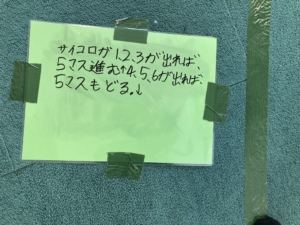 サイコロが1、2、3が出れば、
5マス進む↑4、5、6が出れば、
5マスもどる。↓